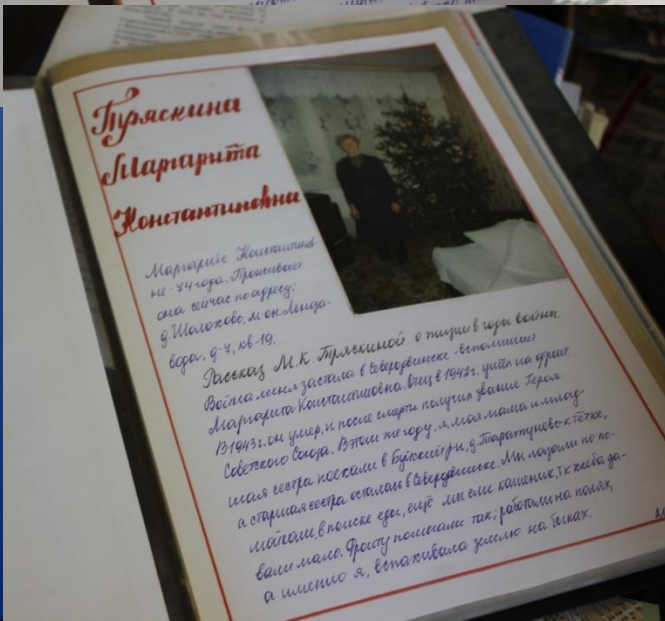 Тряскина
Маргарита
Константиновна
Маргарите Константинов-
не - 74 года. Проживает
она сейчас по адресу:
д. Шолохово, м-он Льнза-
вода, д-7, кв-19.
Рассказ М.К Тряскиной о жизни в годы войны.
Война меня застала в Северодвинске - вспоминает
Маргарита Константиновна. Отец в 1942г. ушёл на фронт.
В 1943г. он умер, и после смерти получил звание Героя
Советского Союза. В этом же году, я, моя мама и млад-
шая сестра поехали в Буйский р-н, д. к тётке,
а старшая сестра осталась в Северодвинске. Мы лазали по по-
мойкам, в поиске еды, ещё мы ели кашеник, т.к хлеба да-
вали мало. Фронту помогали так: работали на полях,
а именно я, вспахивала землю на быках.